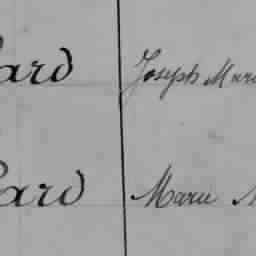 ard Joseph Mari
ard Marie